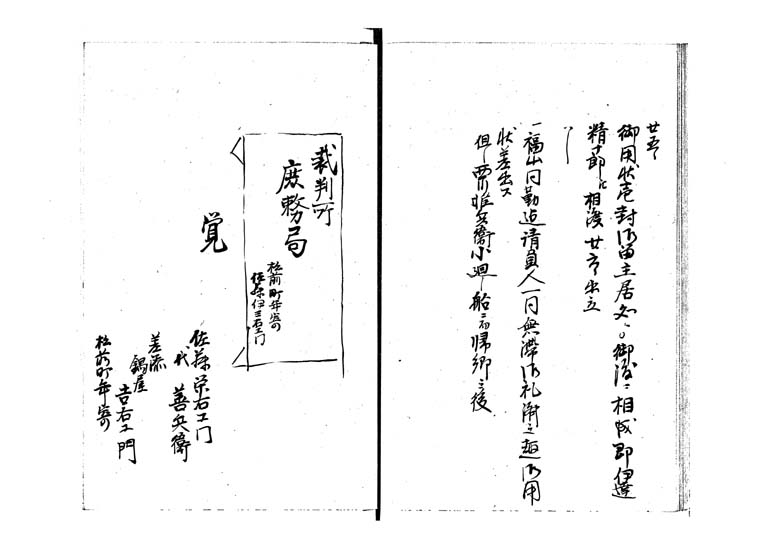 廿五日
御用状壱封御留主居処〻御渡ニ相成即伊達
精一郎に相渡廿六日出立
一福山同勤追請負人一同無滞御礼済之趣御用
状差出ス
但栗惟兵衛小廻り船ニ而帰郷之後
裁判所
庶務局
松前町年寄
佐藤伊三右エ門
覚
佐藤栄右エ門
代 善兵衛
差添
鍋屋
吉右エ門
松前町年寄